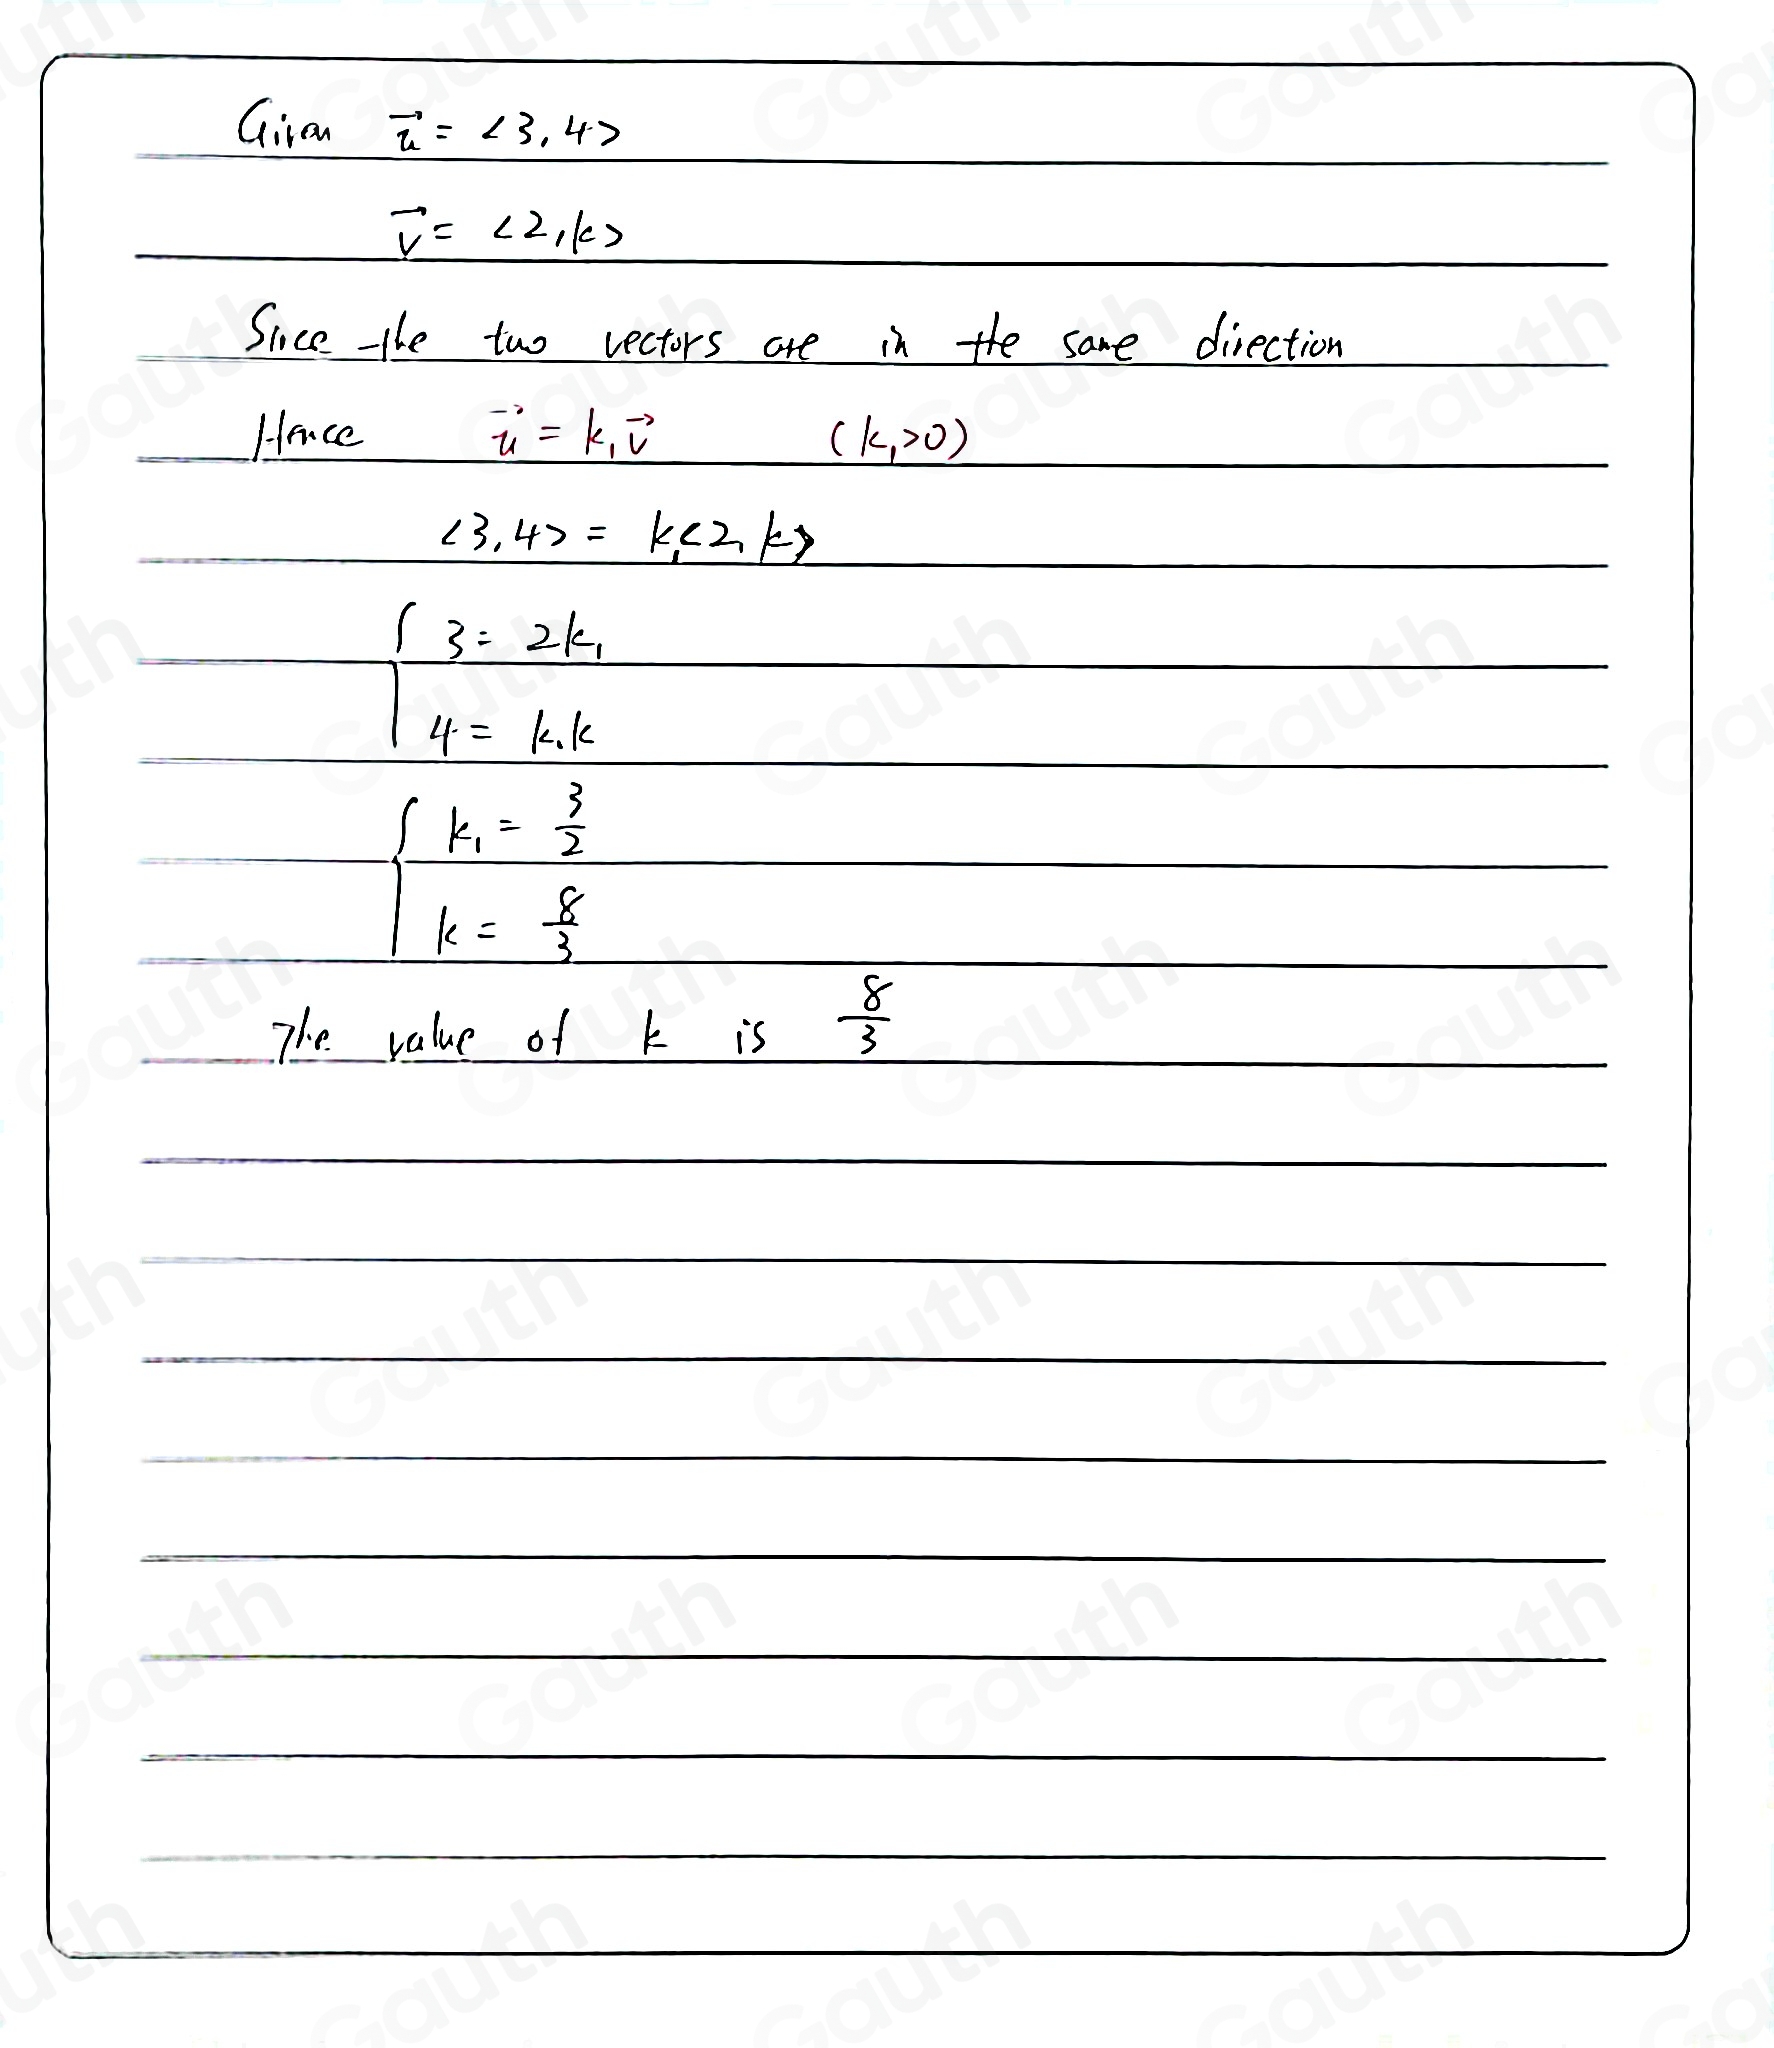 Given u⃗ = <3, 4>
v⃗ = <2, k>
Since the two vectors are in the same direction
Hence u⃗ = k₁v⃗ (k₁>0)
<3, 4> = k₁<2, k>
{ 3 = 2k₁
4 = k₁k
{ k₁ = 3/2
k = 8/3
The value of k is 8/3